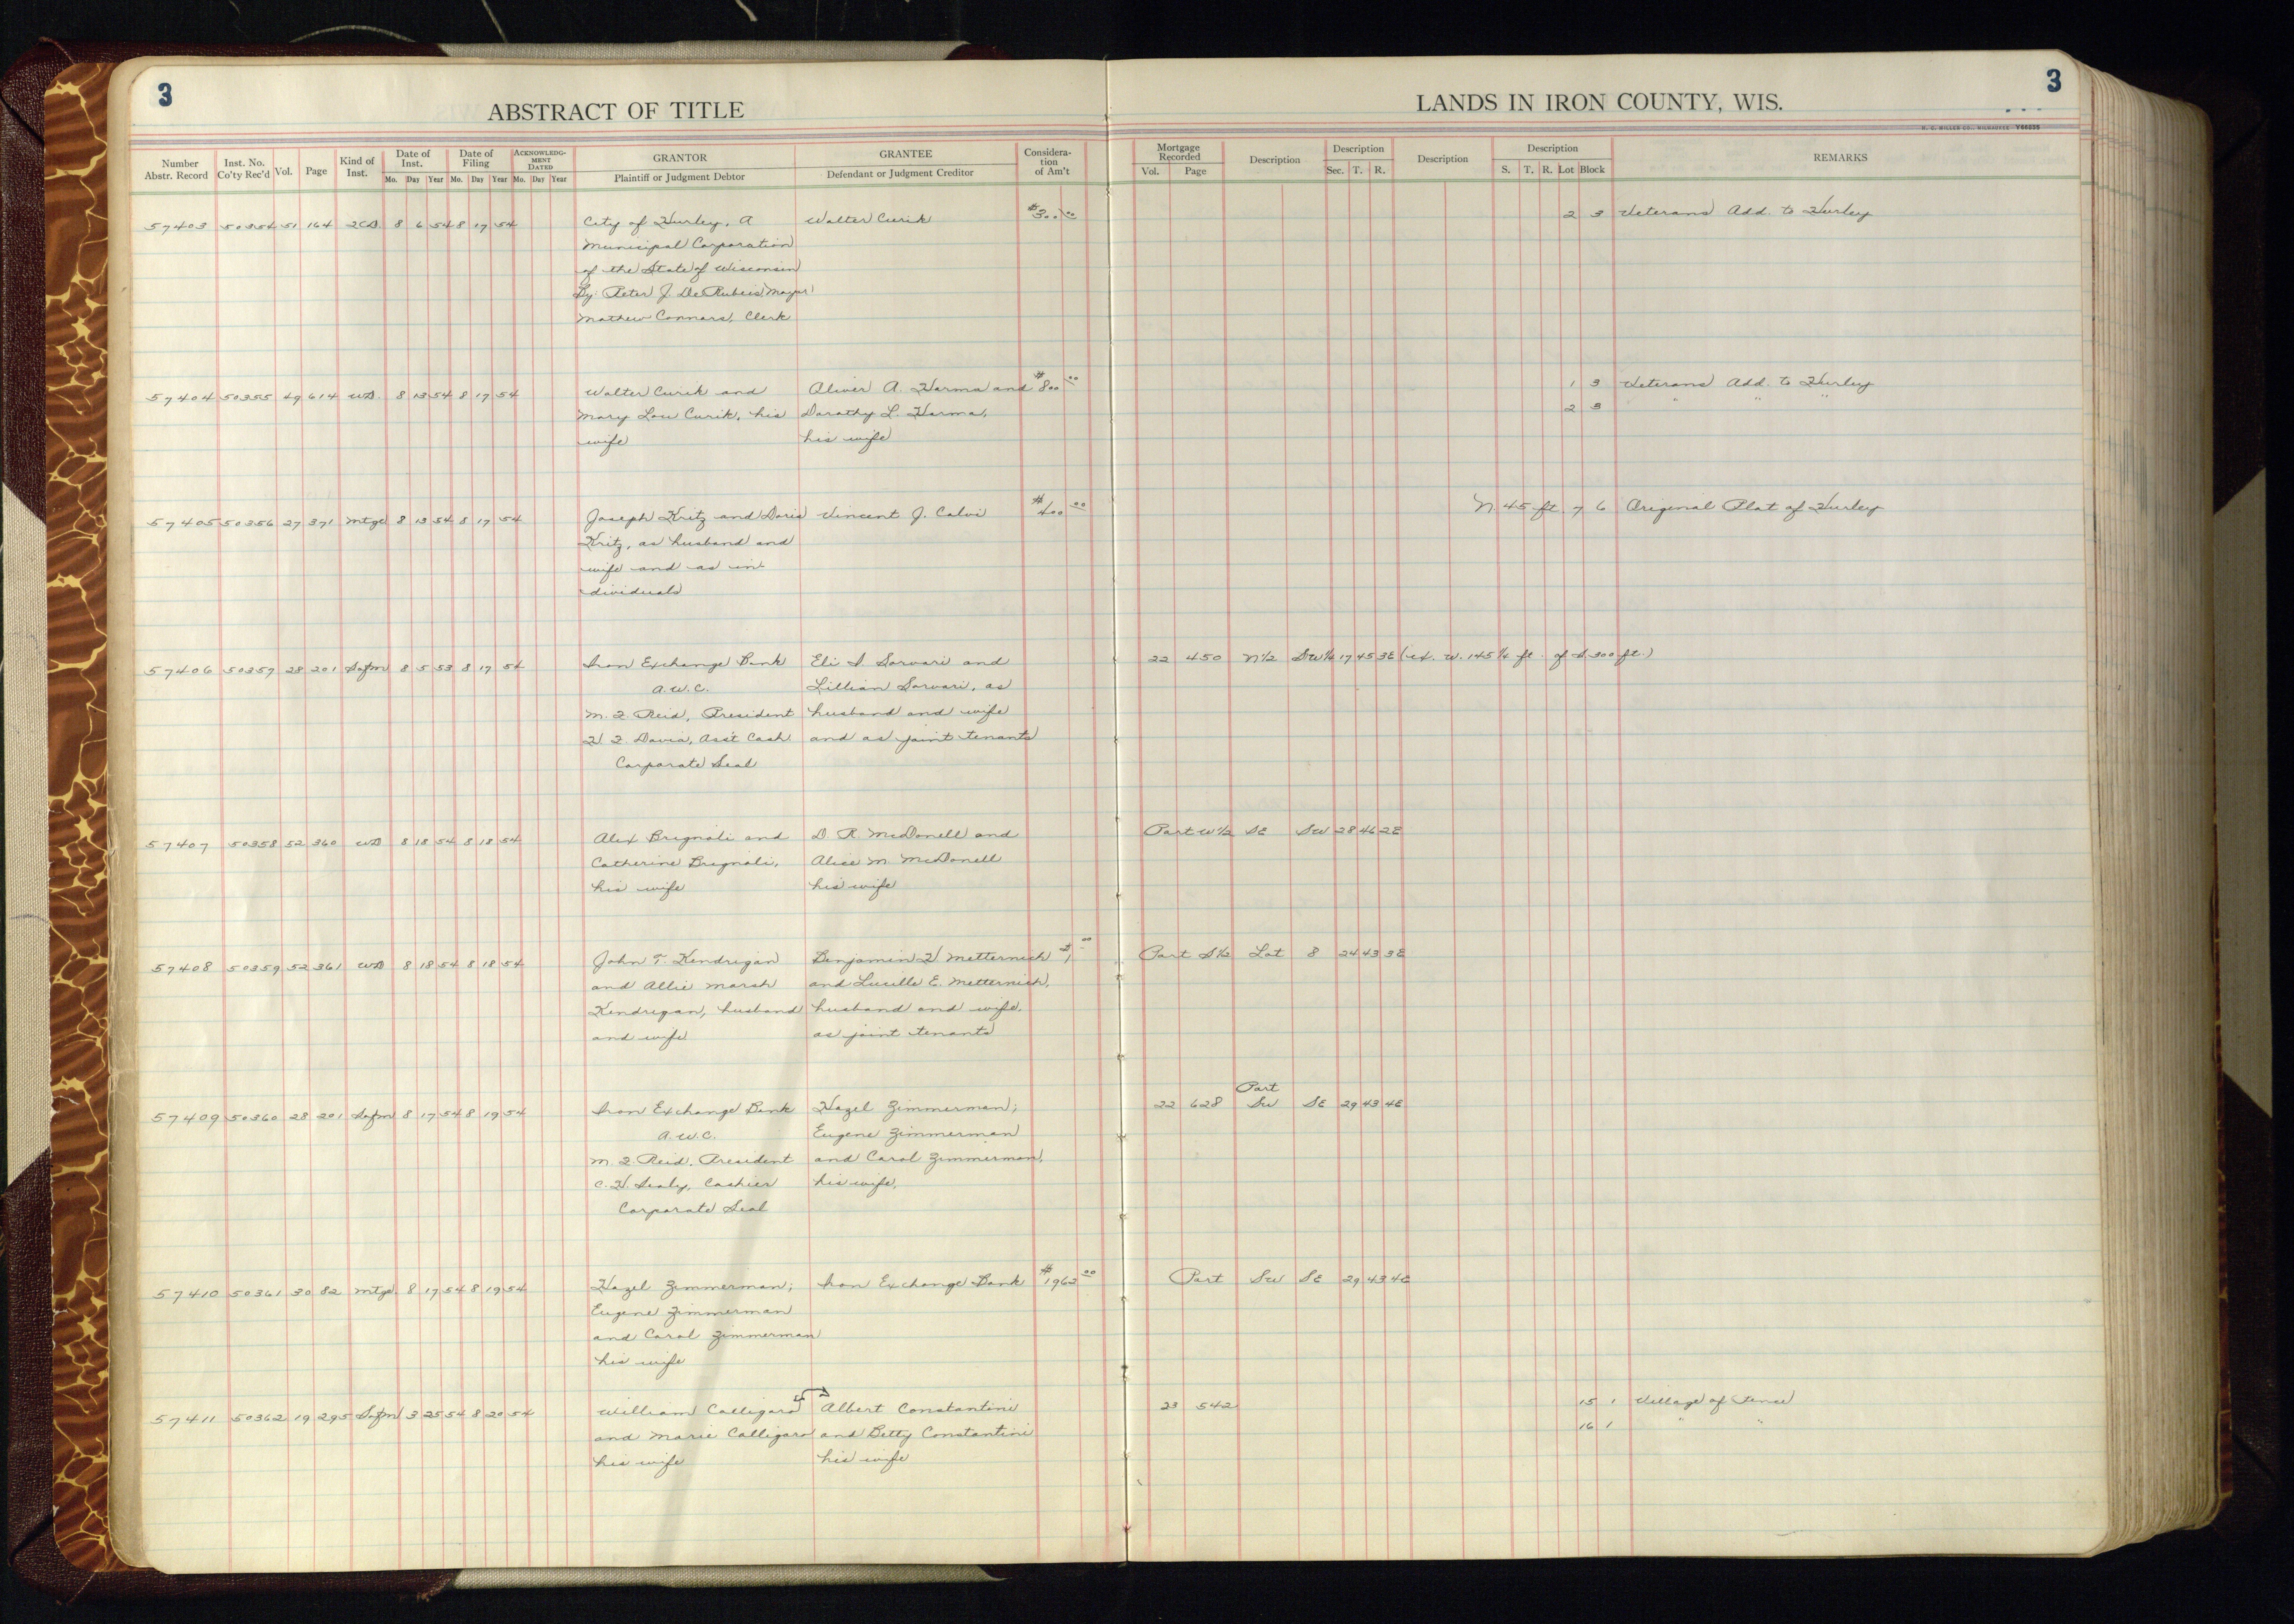 3
3
ABSTRACT OF TITLE
LANDS IN IRON COUNTY, WIS.
H. C. MILLER CO., MILWAUKEE Y66255
Number Abstr. Record
Inst. No. Co'ty Rec'd
Vol.
Page
Kind of Inst.
Date of Inst.
Mo. Day Year
Date of Filing
Mo. Day Year
ACKNOWLEDGMENT DATED
Mo. Day Year
GRANTOR
Plaintiff or Judgment Debtor
GRANTEE
Defendant or Judgment Creditor
Considera-
tion
of Am't
Mortgage Recorded
Vol. Page
Description
Description
Sec. T. R.
Description
Description
S. T. R. Lot Block
REMARKS
57403 50354 51 164 2CD. 8 6 54 8 17 54 City of Hurley, A Walter Curik $300.00 2 3 Veterans Add. to Hurley
Municipal Corporation
of the State of Wisconsin
By: Peter J. DeRubeis Mayor
Mathew Connors, Clerk
57404 50355 49 614 WD. 8 13 54 8 17 54 Walter Curik and Oliver A. Harma and $800.00 1 3 Veterans Add. to Hurley
Mary Lou Curik, his Dorothy L. Harma, 2 3 " " "
wife his wife
57405 50356 27 371 Mtge 8 13 54 8 17 54 Joseph Kritz and Doris Vincent J. Calvi $400.00 N. 45 ft. 7 6 Original Plat of Hurley
Kritz, as husband and
wife and as in-
dividuals
57406 50357 28 201 Safm 8 5 53 8 17 54 Iron Exchange Bank Eli S Sarvari and 22 450 N½ SW¼ 17 45 3E (ex. W. 145¼ ft. of S 300 ft.)
A.W.C. Lillian Sarvari, as
M. F. Reid, President husband and wife
H F Davis, Ass't Cash. and as joint tenants
Corporate Seal
57407 50358 52 360 WD 8 18 54 8 18 54 Alex Brignoli and D R. McDonell and Part W½ SE SW 28 46 2E
Catherine Brignoli, Alice M. McDonell
his wife his wife
57408 50359 52 361 WD 8 18 54 8 18 54 John T. Kendrigan Benjamin H Metternich $1.00 Part S½ Lot 8 24 43 3E
and Allie Marsh and Lucille E. Metternich,
Kendrigan, husband husband and wife,
and wife as joint tenants
Part
57409 50360 28 201 Safm 8 17 54 8 19 54 Iron Exchange Bank Hazel Zimmerman; 22 628 SW SE 29 43 4E
A.W.C. Eugene Zimmerman
M. F. Reid, President and Carol Zimmerman,
C. H. Sealy, Cashier his wife,
Corporate Seal
57410 50361 30 82 Mtge. 8 17 54 8 19 54 Hazel Zimmerman; Iron Exchange Bank $1962.00 Part SW SE 29 43 4E
Eugene Zimmerman
and Carol Zimmerman
his wife
57411 50362 19 295 Safm 3 25 54 8 20 54 William Calligaro Albert Constantini 23 542 15 1 Village of Pence
and Marie Calligaro and Betty Constantini 16 1 " "
his wife his wife